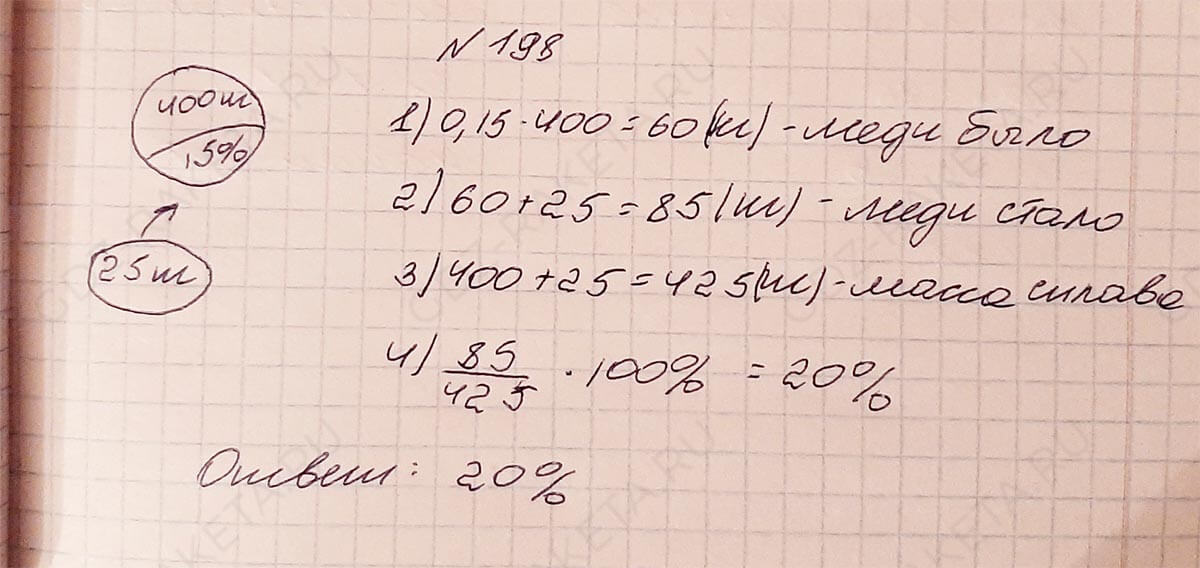 N 198
400т
15%
25т
1) 0,15 · 400 = 60(т) - меди было
2) 60 + 25 = 85(т) - меди стало
3) 400 + 25 = 425(т) - масса сплава
4) 85/425 · 100% = 20%
Ответ: 20%